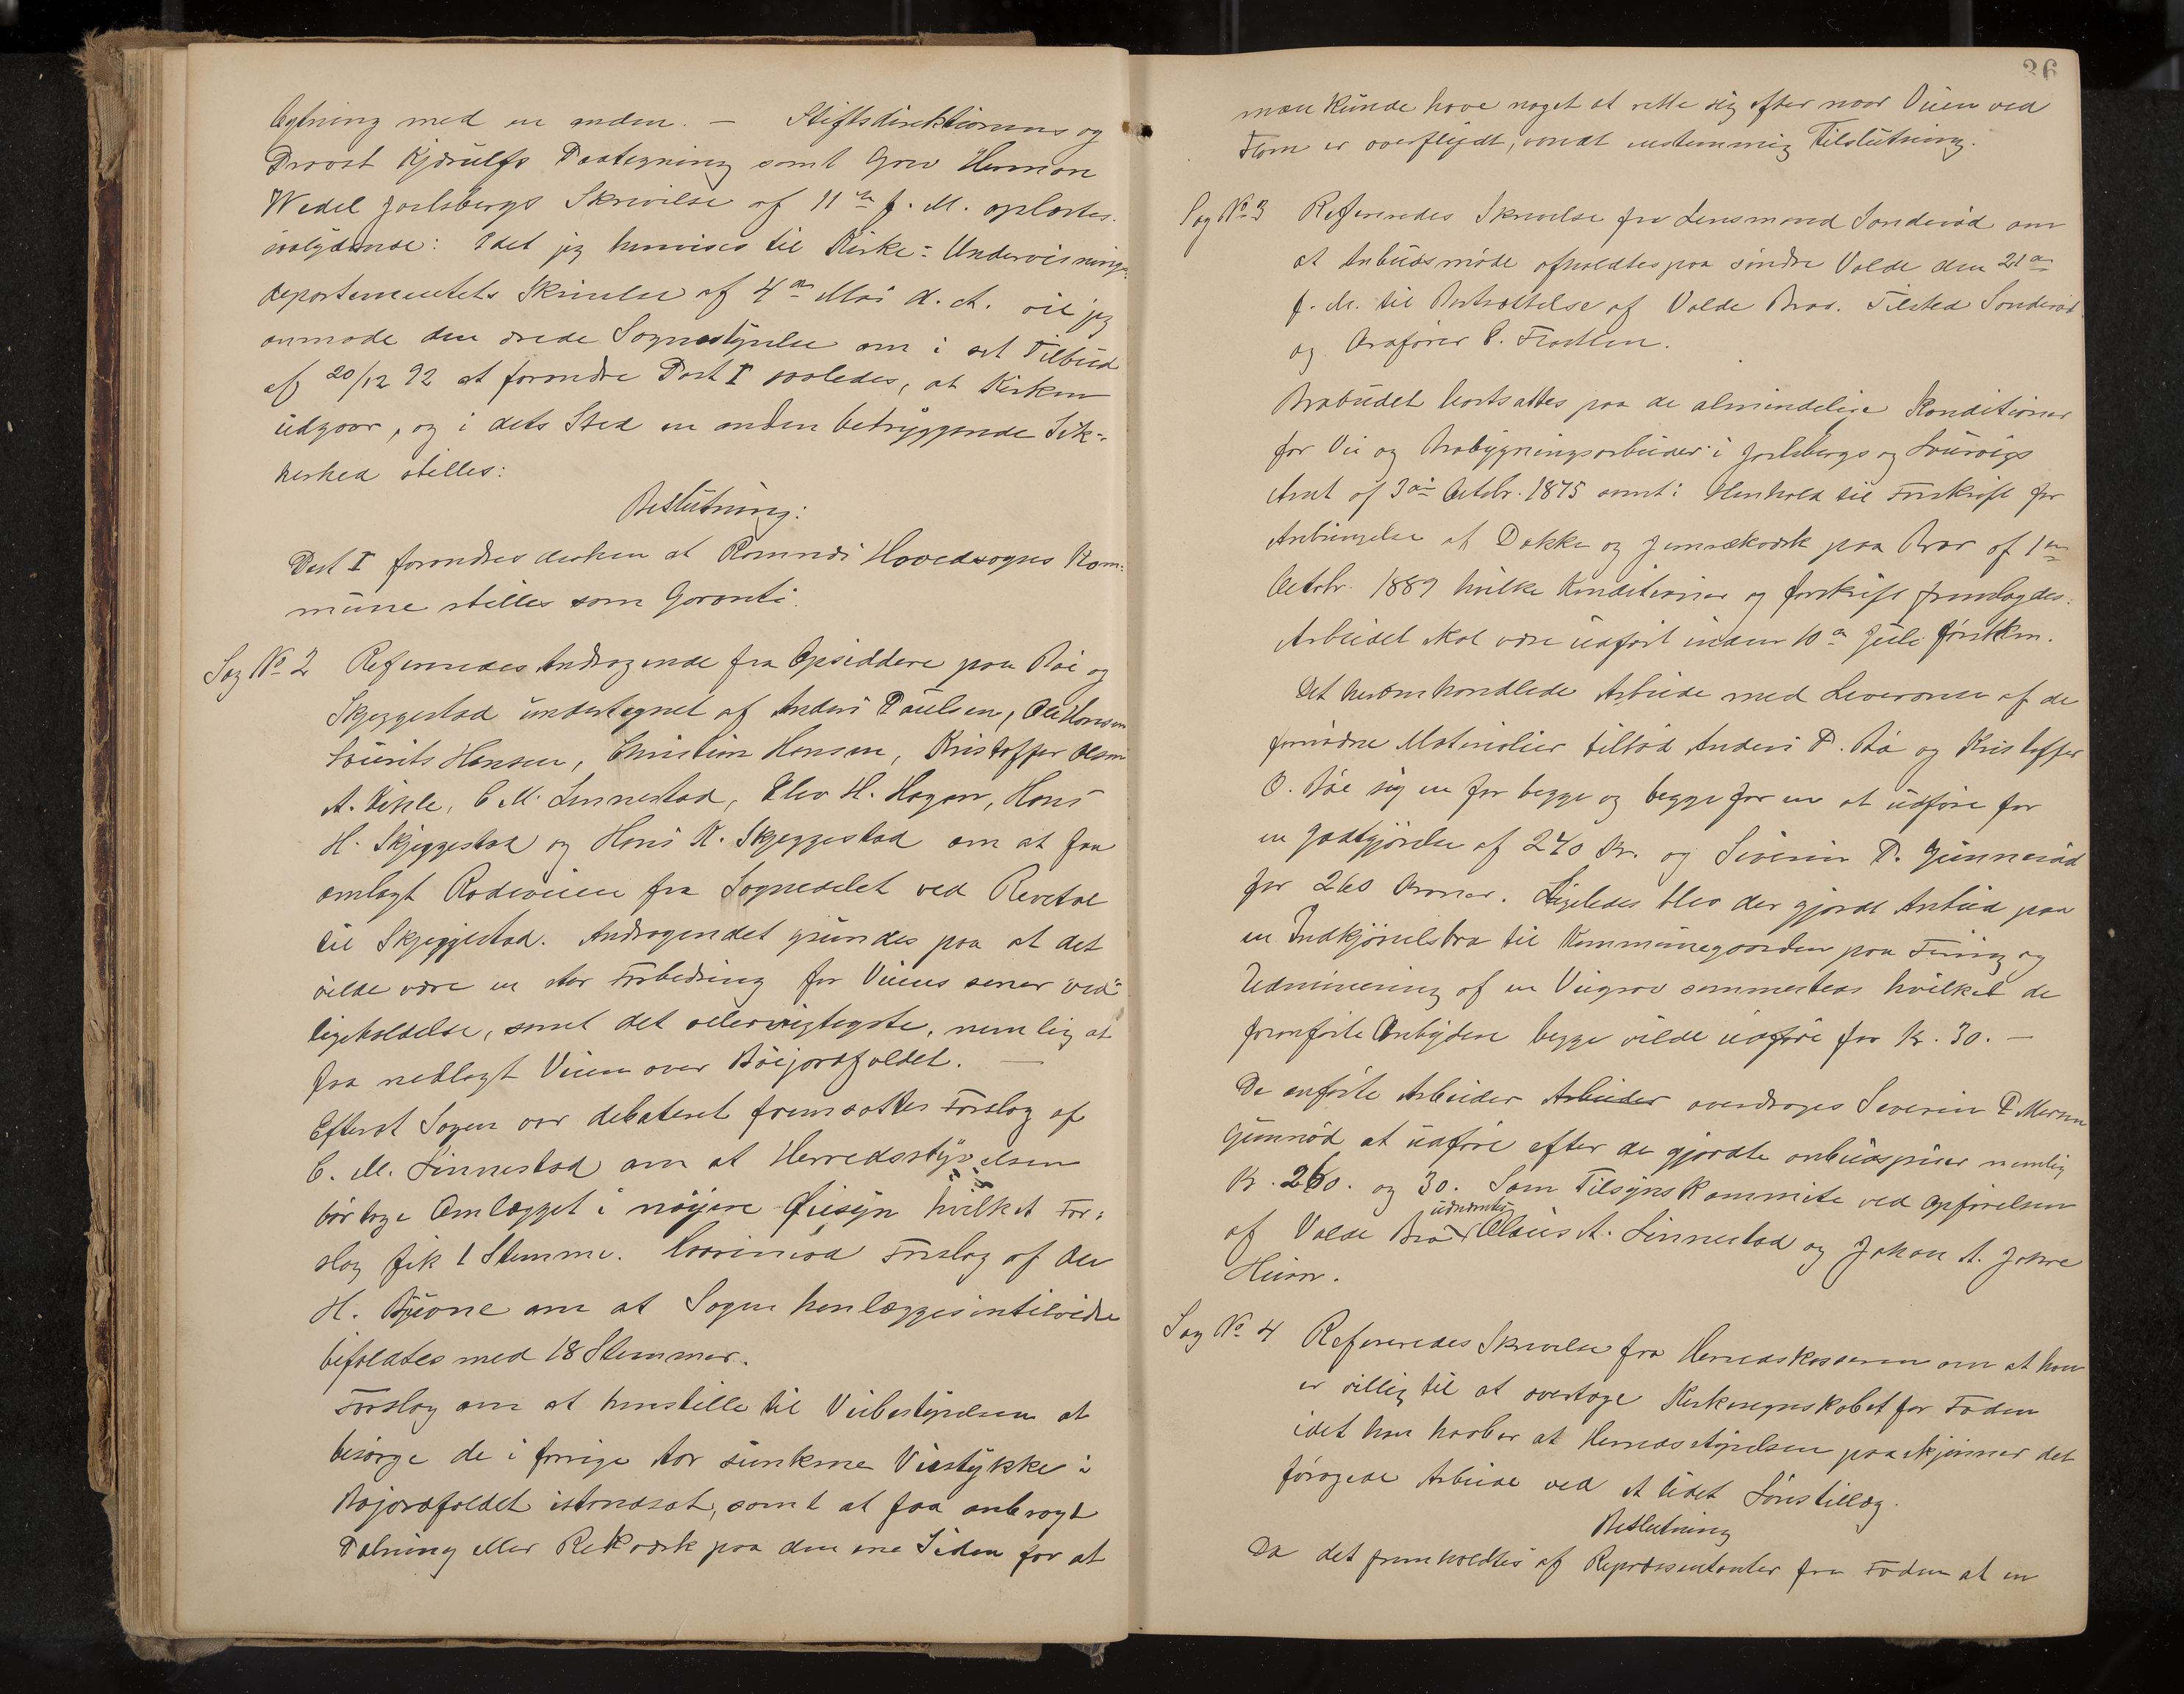 bytning med en anden. — Stiftsdirektionens og
Provst Kjerulfs Paategning samt Grev Herman
Wedel Jarlsbergs Skrivelse af 11te f. M. oplæstes.
saalydende: Idet jeg henvises til Kirke- Undervisnings-
departementets Skrivelse af 4de Mai d. A. vil jeg
anmode den ærede Sognestyrelse om i sit Tilbud
af 20/12 92 at forandre Post I saaledes, at Kirken
udgaar, og i dets Sted en anden betryggende Sik-
kerhed stilles:
Beslutning:
Post I forandres derhen at Ramnæs Hovedsogns Kom-
mune stilles som Garanti.
Sag No 2 Refereredes Andragende fra Opsiddere paa Bøe og
Skjeggestad undertegnet af Anders Paulsen, Ole Hansen
Laurits Hansen, Christian Hansen, Kristoffer Olsen
A. Vikle, C. M. Linnestad, Elev H. Hagan, Hans
H. Skjeggestad og Hans K. Skjeggestad om at faa
omlagt Rodeveien fra Sognedelet ved Revetal
til Skjeggestad. Andragendet grundes paa at det
vilde være en stor Forbedring for Veiens senere ved-
ligeholdelse, samt det allervigtigste, nemlig at
faa nedlagt Veien over Bøejordfaldet. —
Efterat Sagen var debateret fremsattes Forslag af
C. M. Linnestad om at Herredsstyrelsen
bør tage Omlægget i nøiere Øiesyn hvilket For-
slag fik 1 Stemme. Hvorimod Forslag af Ole
H. Bjuone om at Sagen henlægges intilvidre
bifaldtes med 18 Stemmer.
Forslag om at henstille til Veibestyrelsen at
besørge de i forrige Aar sunkne Veistykke i
Bøjordfaldet istandsat, samt at faa anbragt
Pælning eller Rekværk paa den ene Siden for at
36
man kunde have noget at rette sig efter naar Veien ved
Flom er overflydt, vandt enstemmig Tilslutning.
Sag No 3 Refereredes Skrivelse fra Lensmand Sønderød om
at Anbudsmøde afholdtes paa søndre Valde den 21de
f. M. til Bortsættelse af Valde Bro. Tilsted Sønderød
og Ordfører C. Flaatten.
Brobudet bortsattes paa de almindelige Konditioner
for Vei og Brobygningsarbeider i Jarlsbergs og Laurvigs
Amt af 3die Octobr. 1875 samt i Henhold til Forskrift for
Anbringelse af Dække og Jernrækværk paa Broer af 1ste
Octobr. 1889 hvilke Konditioner og forskrift fremlagdes.
Arbeidet skal være udført inden 10de Juli førstkm.
Det heromhandlede Arbeide med Leverance af de
fornødne Materialier tilbød Anders P. Bø og Kristoffer
O. Bøe sig en for begge og begge for en at udføre for
en godtgjørelse af 270 Kr. og Severin P. Gunnerød
for 260 Kroner. Ligeledes blev der gjordt Anbud paa
en Indkjørselsbro til Kommunegaarden paa Fæing og
Udminering af en Veigrav sammesteds hvilket de
fremførte Anbydere begge vilde udføre for Kr. 30. —
De anførte Arbeider Arbeider overdroges Severin P. Mersen
Gunnrød at udføre efter de gjordte anbudspriser nemlig
Kr. 260. og 30. Som Tilsyns Kommite ved opførelsen
udnævntes
af Valde Bro Claus A. Linnestad og Johan A. Jahre
Heian.
Sag No 4 Refereredes Skrivelse fra Herredskasseren om at han
er villig til at overtage Kirkeregnskabet for Foden
idet han haaber at Herredsstyrelsen paaskjønner det
forøgede Arbeide ved et lidet Lønstillæg.
Beslutning
Da det fremholdtes af Repræsentanter fra Foden at en